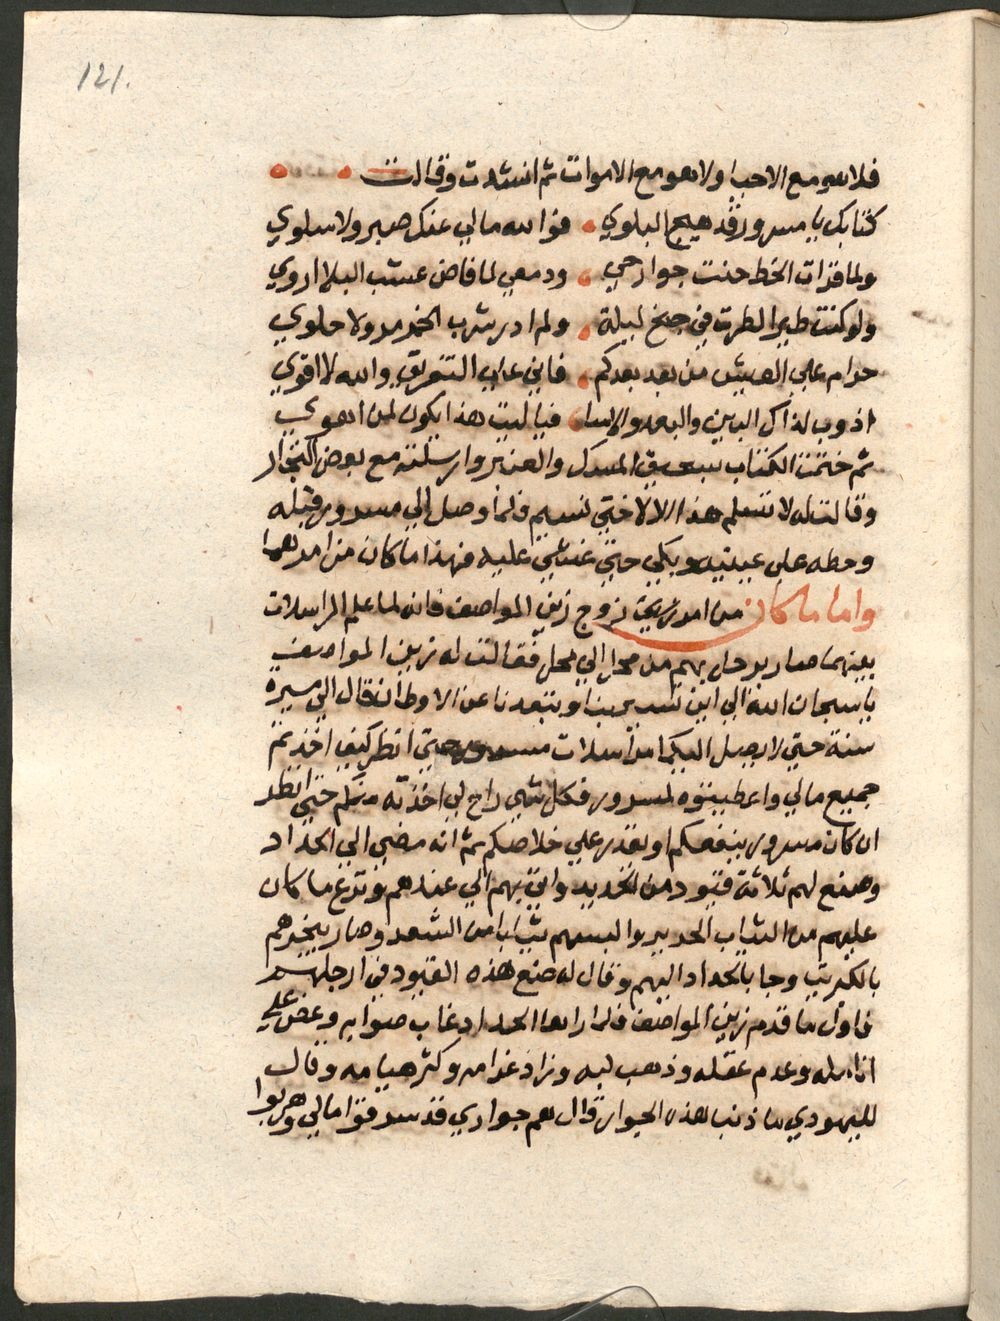 121.
فلا هو مع الاحبا ولا هو مع الاموات ثم انشدت وقالت
كتابك يا مسرور قد هيج البلوي فوالله مالي عنك صبر ولا سلوي
ولما قرات الخط حنت جوارحي ودمعي لما فاض عشب البلا اروي
ولو كنت طيرا لطرت في جنح ليلة ولم ادر شرب الخمر مر ولا حلوي
حرام علي العيش من بعد بعدكم فاني علي التفريق والله لا اقوي
اذوب لذاك البين والبعد والاسا فياليت هذا يكون لمن اهوي
ثم ختمت الكتاب بسحيق المسك والعنبر وارسلته مع بعض التجار
وقالت له لا تسلم هذا الا لاختي نسيم فلما وصل الي مسرور قبله
وحطه علي عينيه وبكي حتي غشي عليه فهذا ما كان من امرهما
واما ما كان من امر زوج زين المواصف فانه لما علم المراسلات
بينهما صار يرحل بهم من محل الي محل فقالت له زين المواصف
يا سبحان الله الي اين تسير بنا وتبعدنا عن الاوطان قال الي مسيرة
سنة حتي لا يصل اليكم مراسلات مسرور حتي انظر كيف اخذتم
جميع مالي واعطيتوه لمسرور فكل شي راح لي اخذته منكم حتي انظر
ان كان مسرور ينفعكم او يقدر علي خلاصكم ثم انه مضي الي الحداد
وصنع لهم ثلاثة قيود من الحديد واتي بهم الي عندهم ونزع ما كان
عليهم من الثياب الحرير والبسهم ثيابا من الشعر وصار يبخرهم
بالكبريت وجا بالحداد اليهم وقال له صنع هذه القيود في ارجلهم
فاول ما قدم زين المواصف فلما راها الحداد غاب صوابه وعض علي
انامله وعدم عقله وذهب لبه وزاد غرامه وكثر هيامه وقال
لليهودي ما ذنب هذه الجوار قال هم جواري قد سرقوا مالي وهربوا